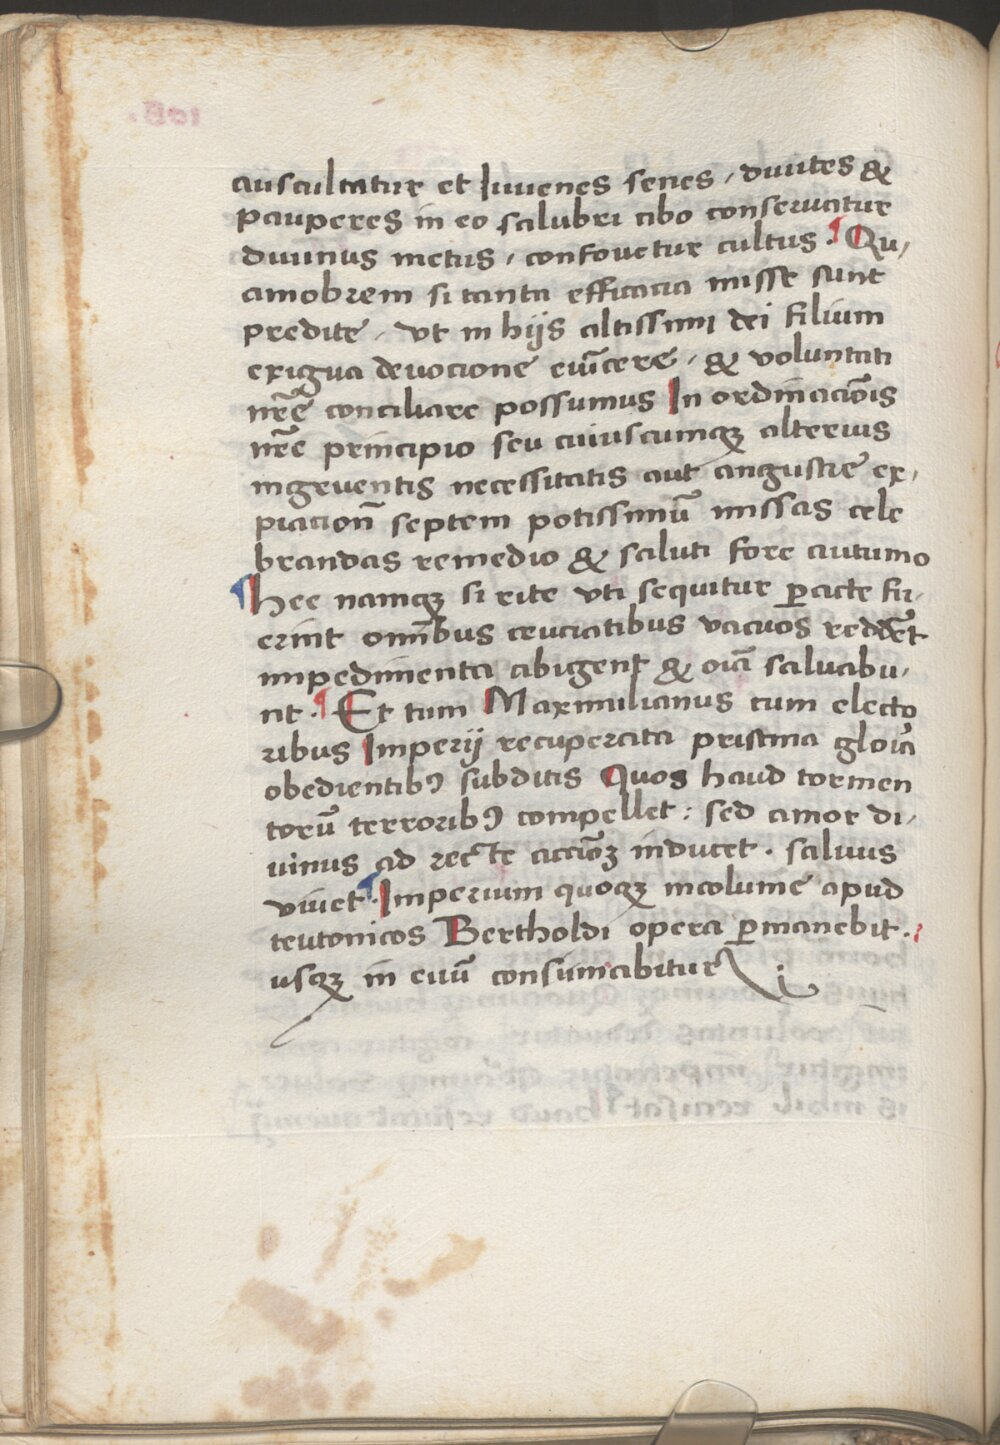 auscultatur et Iuuenes senes, diuites &
pauperes in eo salubri cibo conseruatur
diuinus metus, confouetur cultus. ¶ Qu,
amobrem si tanta efficacia misse sunt
predite, vt in hijs altissimi dei filium
exigua deuocione euīcere, & voluntati
nr̄e conciliare possumus In ordinaciōis
nr̄e principio seu cuiuscumqꝫ alterius
ingruentis necessitatis aut angustie ex,
piacionē septem potissimū missas cele
brandas remedio & saluti fore autumo
¶ hec namqꝫ si rite vti sequitur ꝑacte fu,
erint om̄ibus cruciatibus vacuos reddēt
impedimenta abigent & oīa saluabu,
nt. ¶ Et tum Maximilianus cum electo
ribus Imperij recuperata pristina glōia
obedientibꝰ subditis Quos haud tormen
torū terroribꝰ compellet: sed amor di,
uinus ad recte acciōꝫ inducet. saluus
viuet. ¶ Imperium quoqꝫ incolume apud
teutonicos Bertholdi opera ꝑmanebit.
usqꝫ in euū consūmabitur